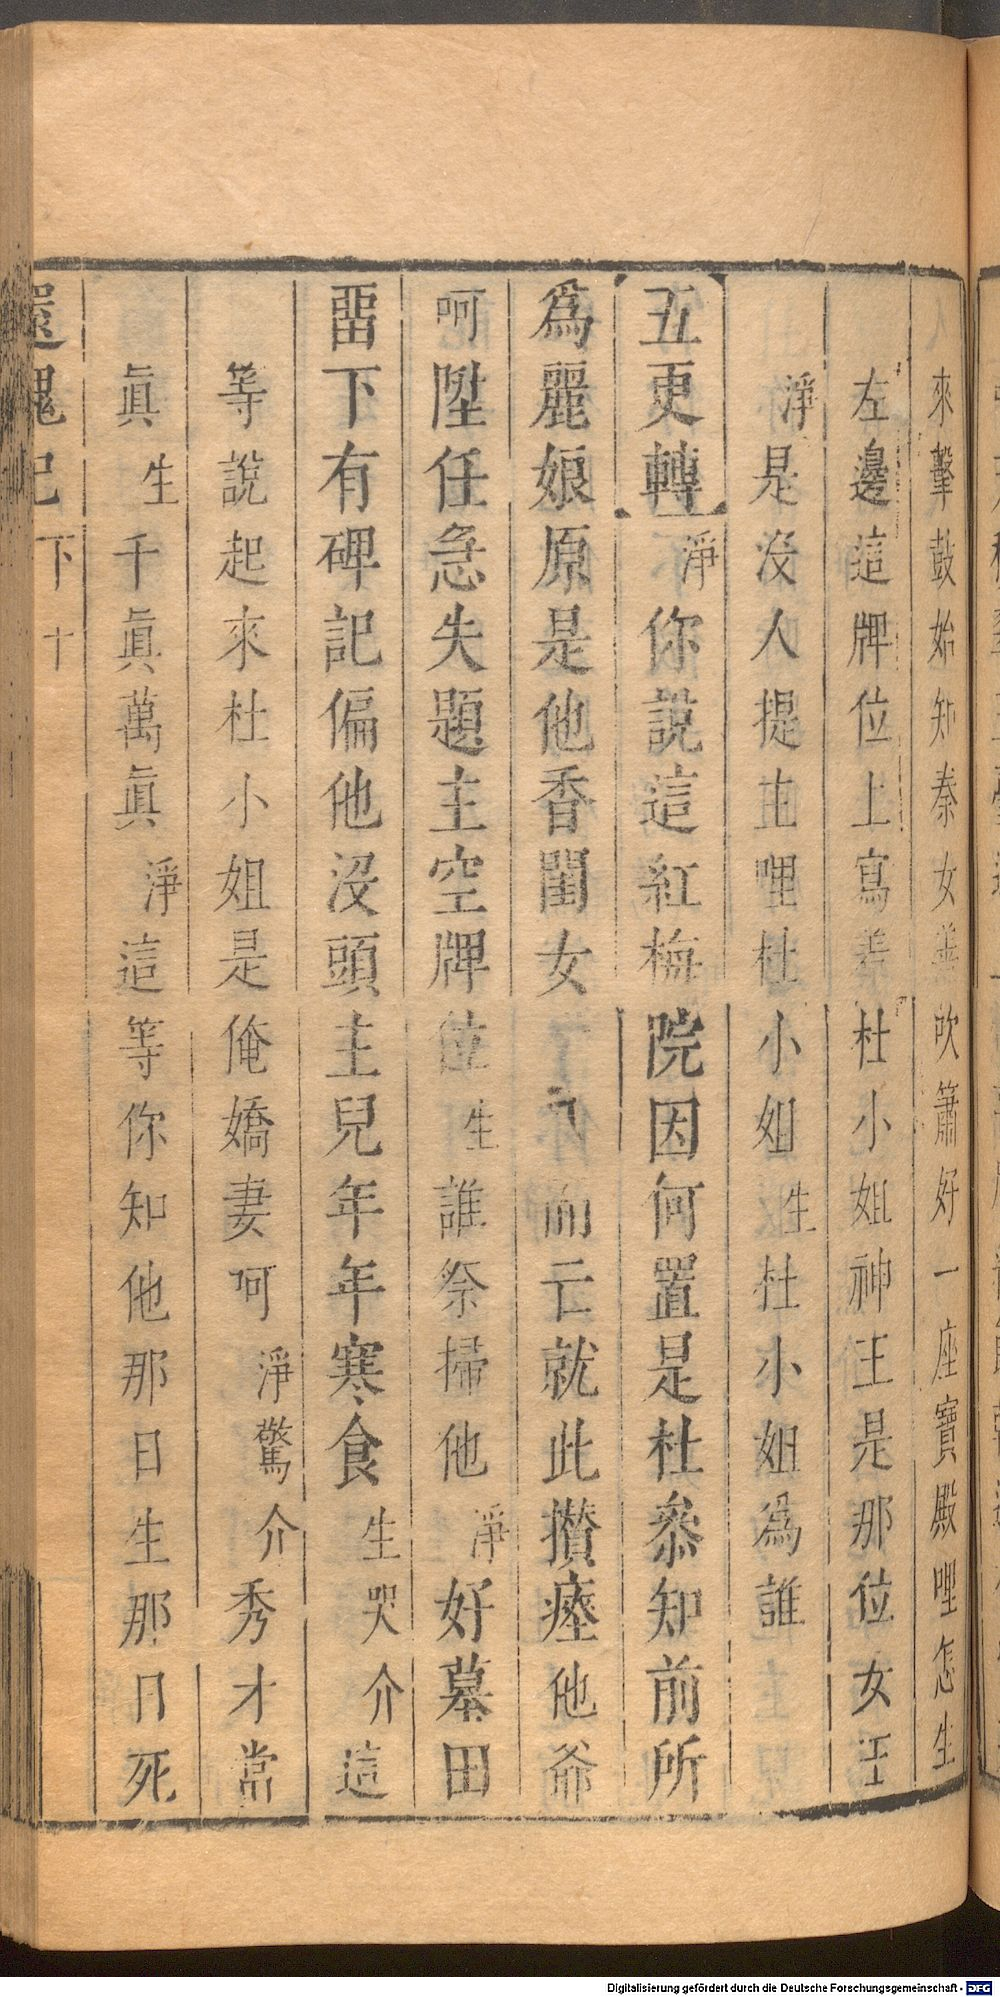 來擊鼓始知秦女善吹簫好一座寶殿哩怎生
左邊這牌位上寫着杜小姐神王是那位女王
淨是沒人提主哩杜小姐生杜小姐爲誰
五更轉淨你說這紅梅院因何置是杜叅知前所
爲麗娘原是他香閨女而亡就此攢瘞他爺
呵陞任急失題主空牌位生誰祭掃他淨好墓田
畱下有碑記偏他沒頭主兒年年寒食生哭介這
等說起來杜小姐是俺嬌妻呵淨驚介秀才當
眞生千眞萬眞淨這等你知他那日生那日死
還魂記 下 十
Digitalisierung gefördert durch die Deutsche Forschungsgemeinschaft - DFG